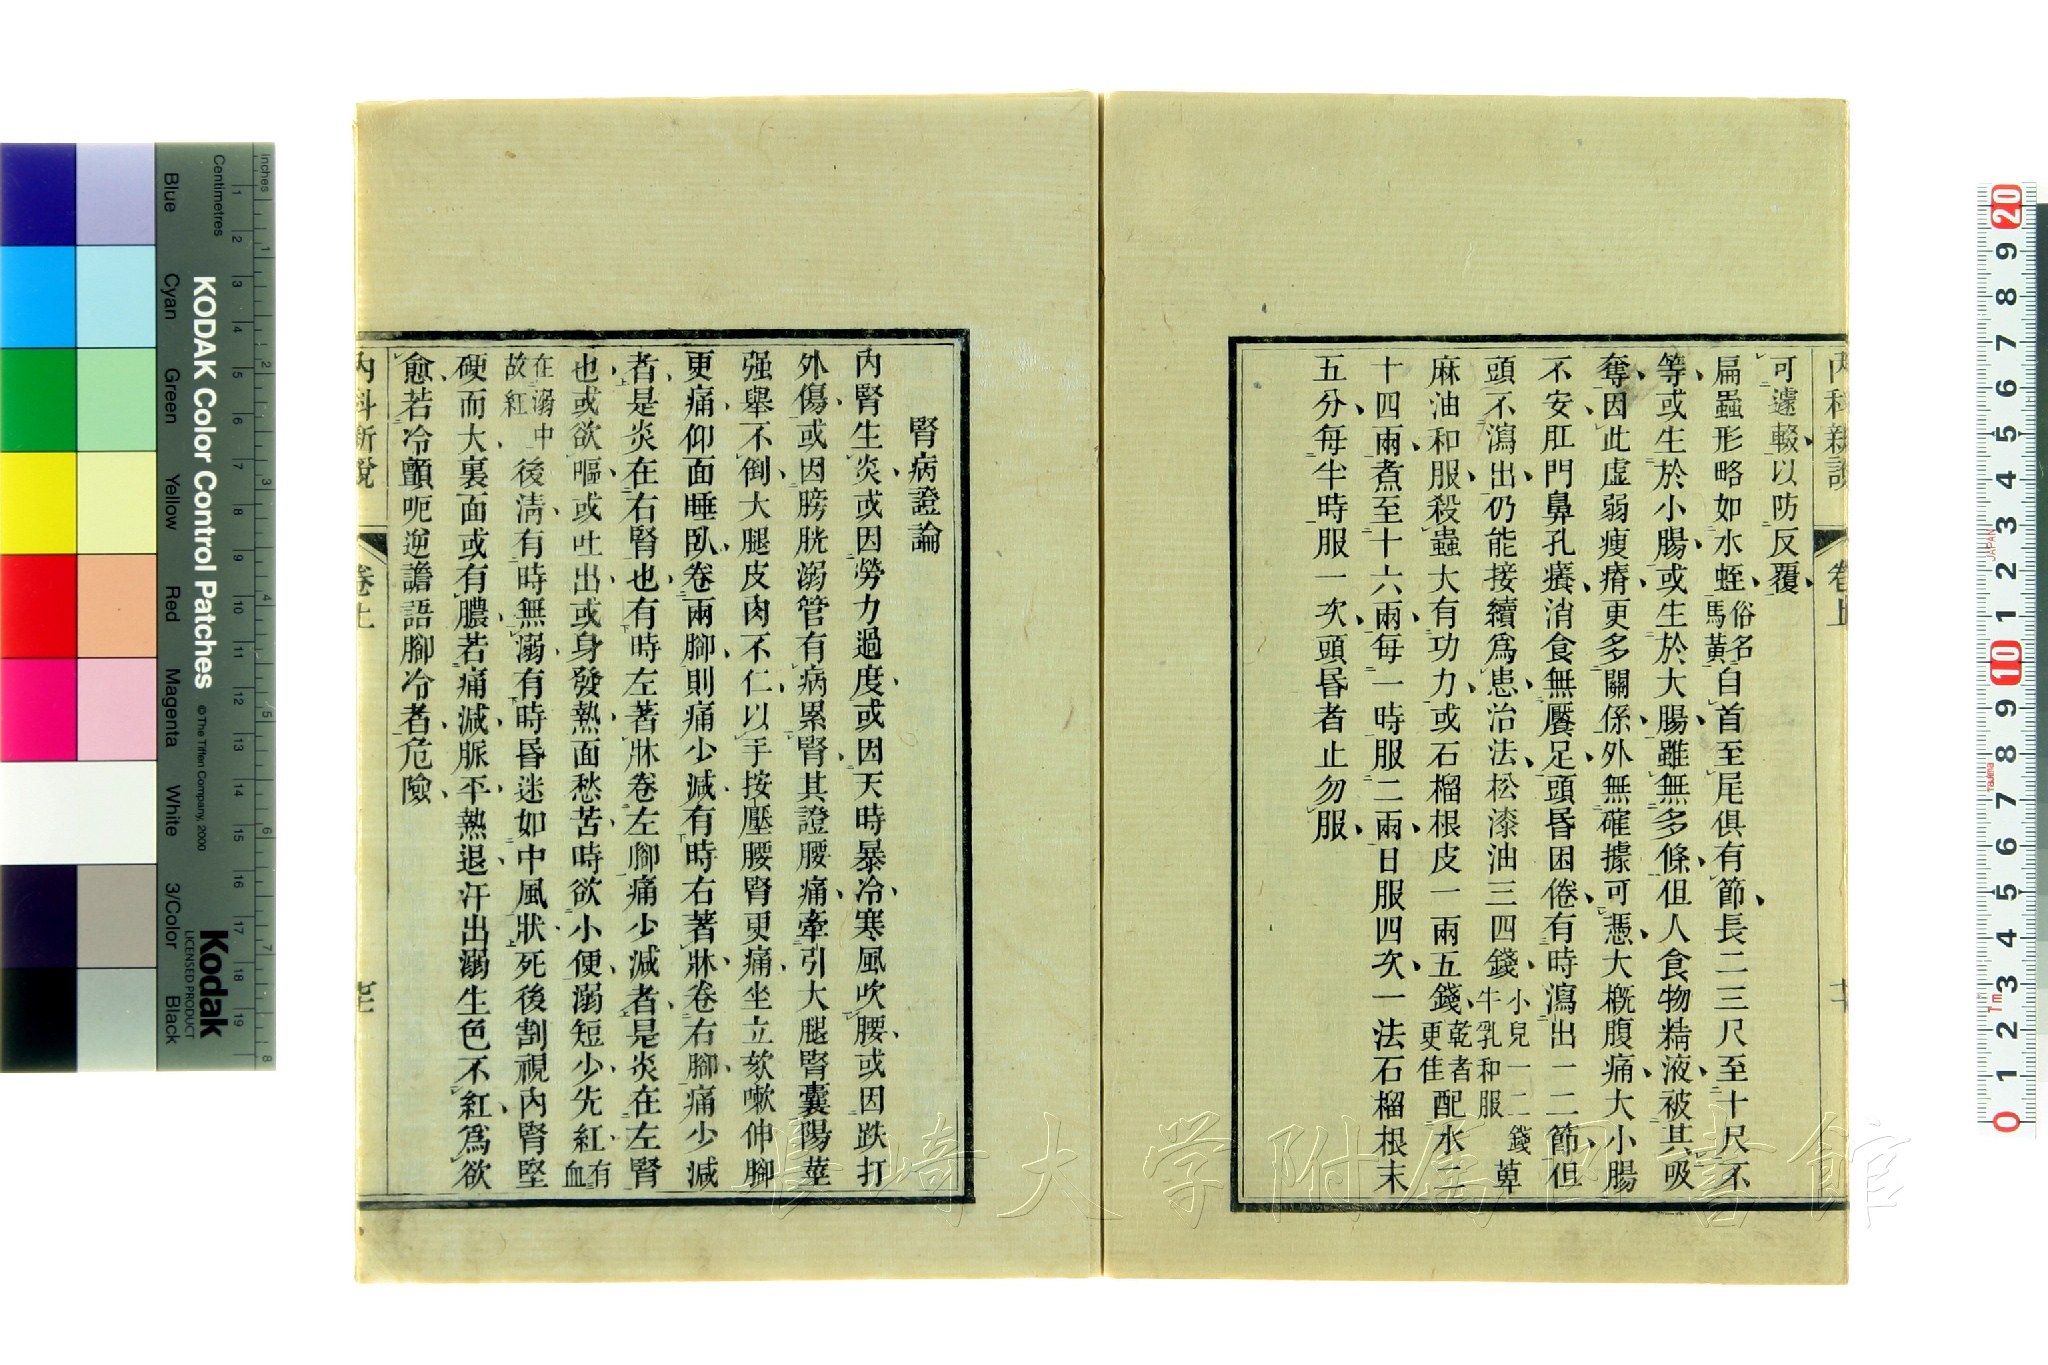 可遽輟以防反覆
扁蟲形略如水蛭俗名馬黃自首至尾俱有節長二三尺至十尺不
等或生於小腸或生於大腸雖無多條但人食物精液被其吸
奪因此虛弱瘦瘠更多關係外無確據可憑大槪腹痛大小腸
不安肛門鼻孔癢消食無饜足頭昏困倦有時瀉出一二節但
頭不瀉出仍能接續爲患治法松漆油三四錢小兒一二錢牛乳和服萆
麻油和服殺蟲大有功力或石榴根皮一兩五錢乾者更佳配水二
十四兩煮至十六兩每一時服二兩日服四次一法石榴根末
五分每半時服一次頭昏者止勿服
腎病證論
內腎生炎或因勞力過度或因天時暴冷寒風吹腰或因跌打
外傷或因膀胱溺管有病累腎其證腰痛牽引大腿腎囊陽莖
强舉不倒大腿皮肉不仁以手按壓腰腎更痛坐立欬嗽伸腳
更痛仰面睡臥卷兩腳則痛少減有時右著牀卷右腳痛少減
者是炎在右腎也有時左著牀卷左腳痛少減者是炎在左腎
也或欲嘔或吐出或身發熱面愁苦時欲小便溺短少先紅有血
在溺中故紅後淸有時無溺有時昏迷如中風狀死後割視內腎堅
硬而大裏面或有膿若痛減脈平熱退汗出溺生色不紅爲欲
愈若冷顫呃逆譫語腳冷者危險
內科新說
卷上
KODAK Color Control Patches
© The Tiffen Company, 2000
Kodak
LICENSED PRODUCT
Inches
Centimetres
Blue
Cyan
Green
Yellow
Red
Magenta
White
3/Color
Black
長崎大学附属図書館